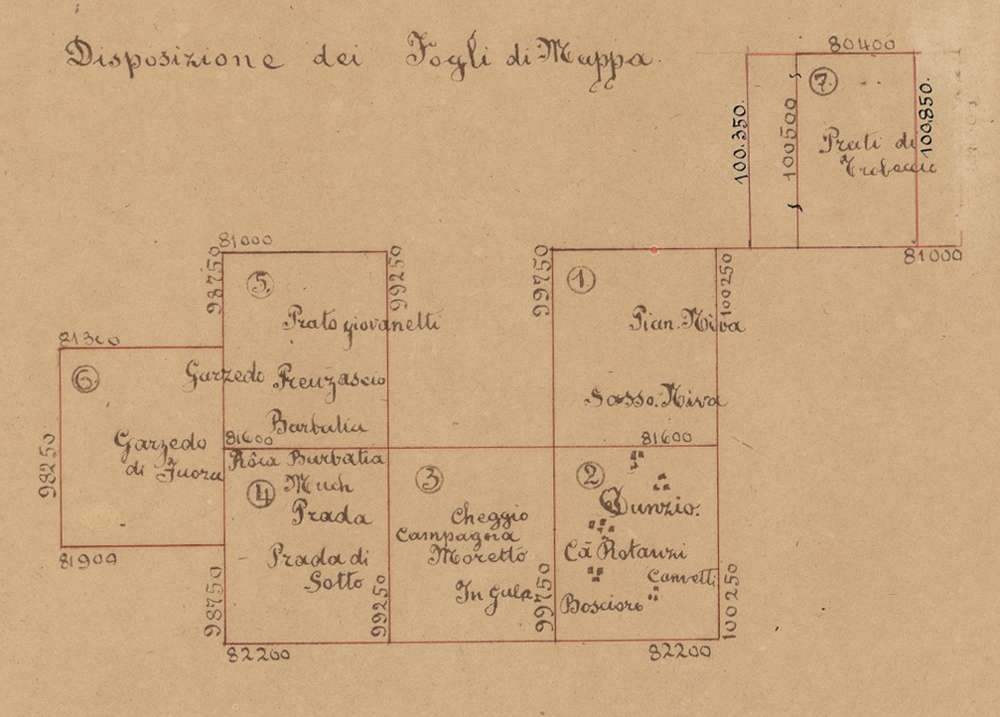 Disposizione dei Fogli di Mappa.
80400
100.350.
100500
7.
100.850.
Prati di
81000
81000
98750
99250
5.
Prato giovanetti
99750
1.
100250
Pian. Niva
81300
6.
Garzedo
Freuzascio
Sasso. Niva
Barbatia
Garzedo
di Fuora
98250
81600
81600
Rôca Barbatia
4
Much
Prada
3
2
Sunzio.
Cheggio
Campagna
Moretto
Cà Rotanzi
Prada di
Sotto
In Gula
Canvetti
Bosciori
81900
98750
99250
99750
100250
82200
82200